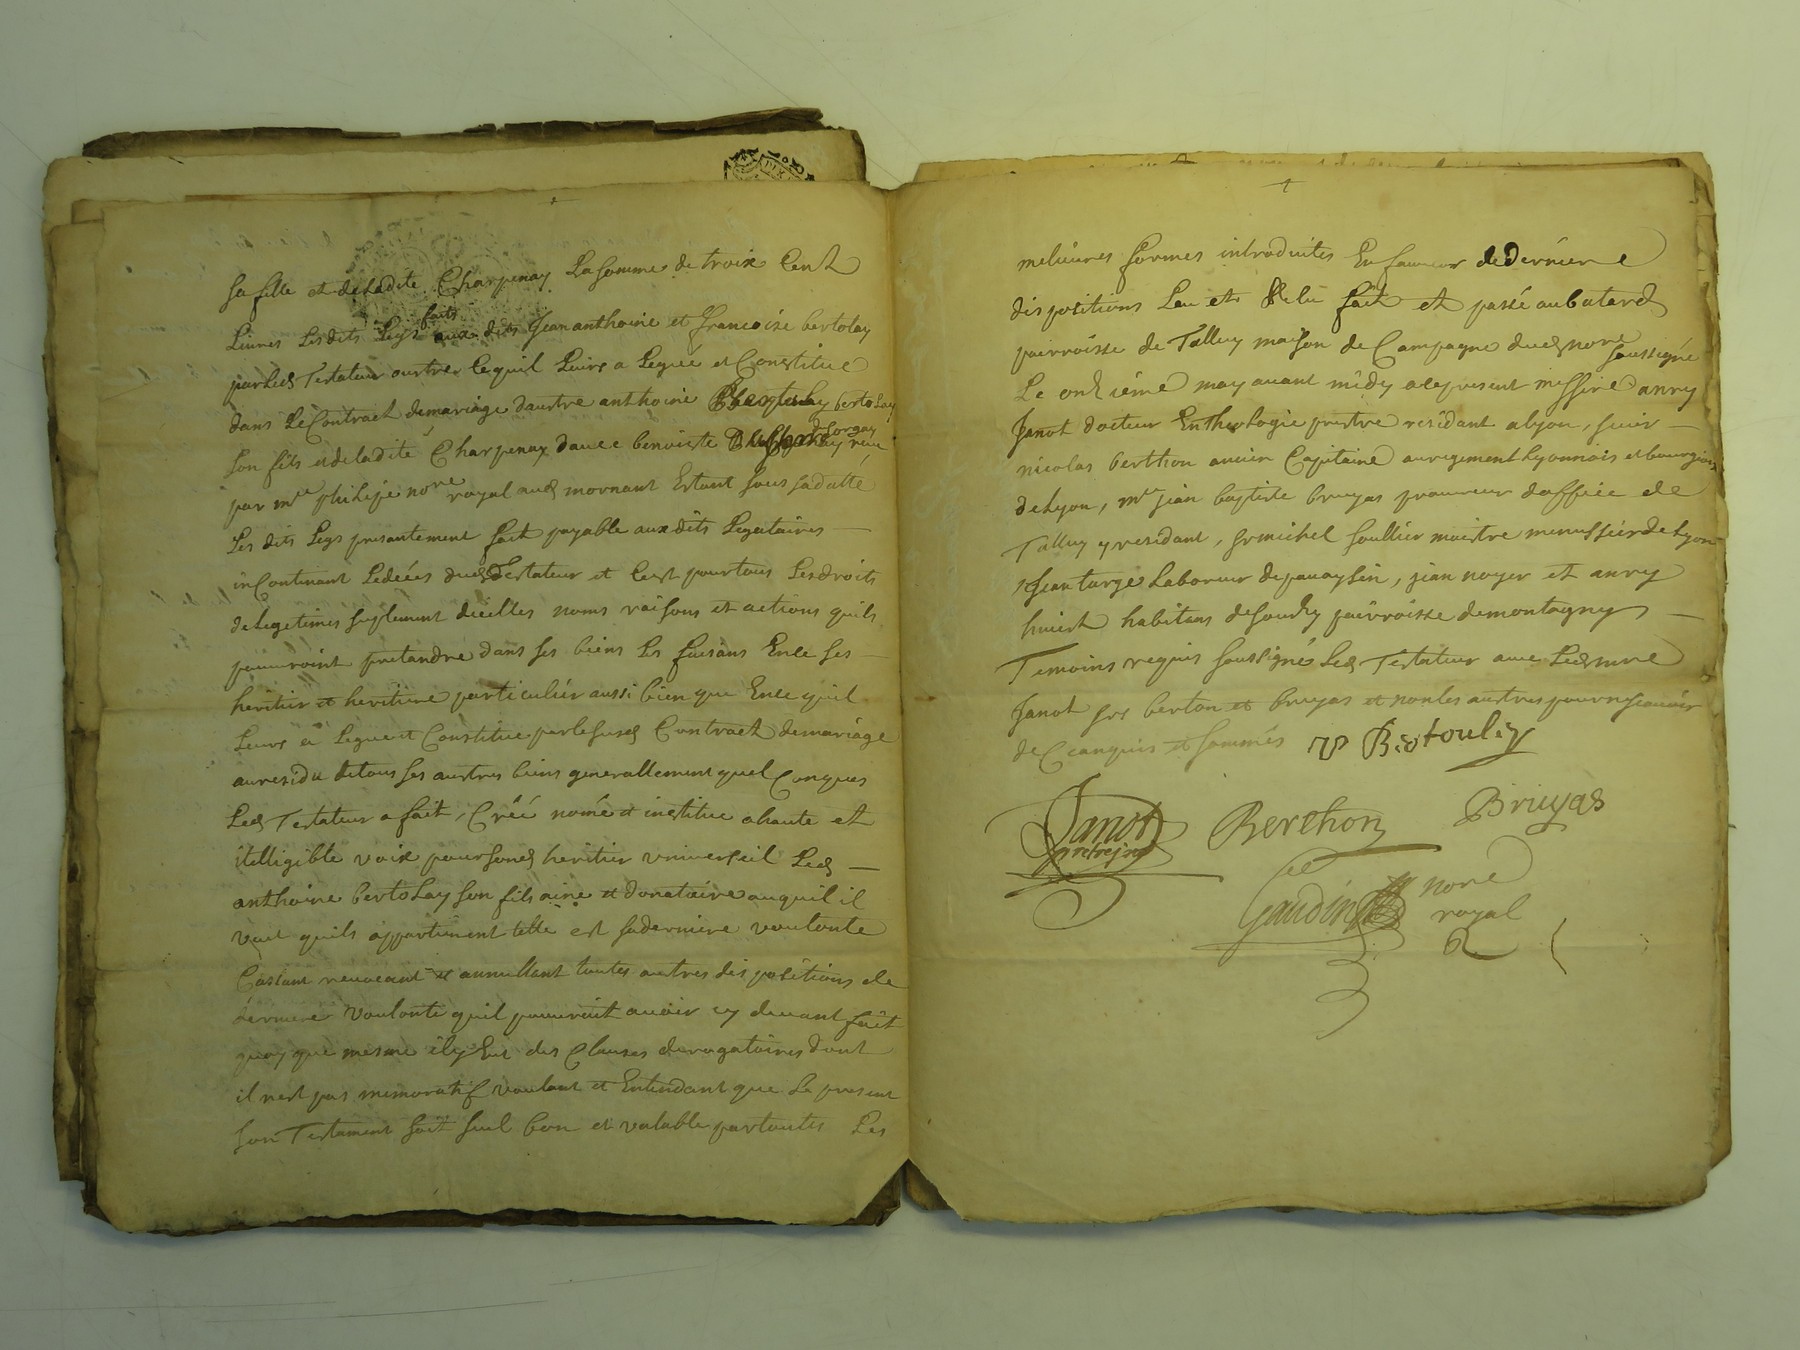 sa fille et de ladite Charpenay La somme de troix Cent
Livres Lesdits Legs faits aux dits Jean anthoine et francoise bertolay
par Led Testateur outre lequil Leurs a Legué et Constitué
dans Le Contract de mariage dautre anthoine bertolay
son fils et de ladite Charpenay avec benoiste receu
par mre philipe nore royal aud mornant Estant sous sa datte
Les dits Legs presentement fait payable aux dits Legataires
in Continant Ledéées dud Testateur et Cest pour tous Les droits
de Legetimes suplement dicelles noms raisons et actions quils
pouuroint pretandre dans ses biens Les faisans En ce ses
heritier et heritiere particulier aussi bien que En ce quil
Leurs a Legué et Constitue par le susd Contract de mariage
au residu de tous ses autres biens generallement quel Conques
Led Testateur a fait, Créé nomé et institue a haute et
itelligible voix pour son heritier vniverseil Led
anthoine bertolay son fils ainé et donataire auquil il
veut quils appartienent telle est sa derniere voulonte
Cassant reuocant et annullant toutes autres dis positions de
derniere voulonté quil pouuroit auoir cy deuant fait
quoy que mesme il y Eut des Clauses derogatoires dont
il nest pas memoratif voulant et Entendant que Le present
son Testament soit seul bon et valable par toutes Les
melieures formes introduites En faueur de derniere
dis positions Leu et Relu fait et passé au batard
parroisse de Talluy maison de Campagne dud nore soussigné
Le onzieme may auant midy a le present messire anry
Janot docteur En theologie prestre residant a lyon, sieur
nicolas berthon ancien Capitaine au regiment Lyonnois et bourgeois
de Lyon, mre jean baptiste bruyas procureur doffice de
Talluy y residant, sr michel soullier maistre menussier de Lyon
Jean targe Laboreur de , jean noyer et anry
habitans de sourzy parroisse de montagny
Temoins requis soussigné Led Testateur auec Led mre
Janot srs berton et bruyas et non les autres pour ne scauoir
de Ce anquis et sommés
Janot
pretre
Berthon
Bruyas
Gaudin nore
royal